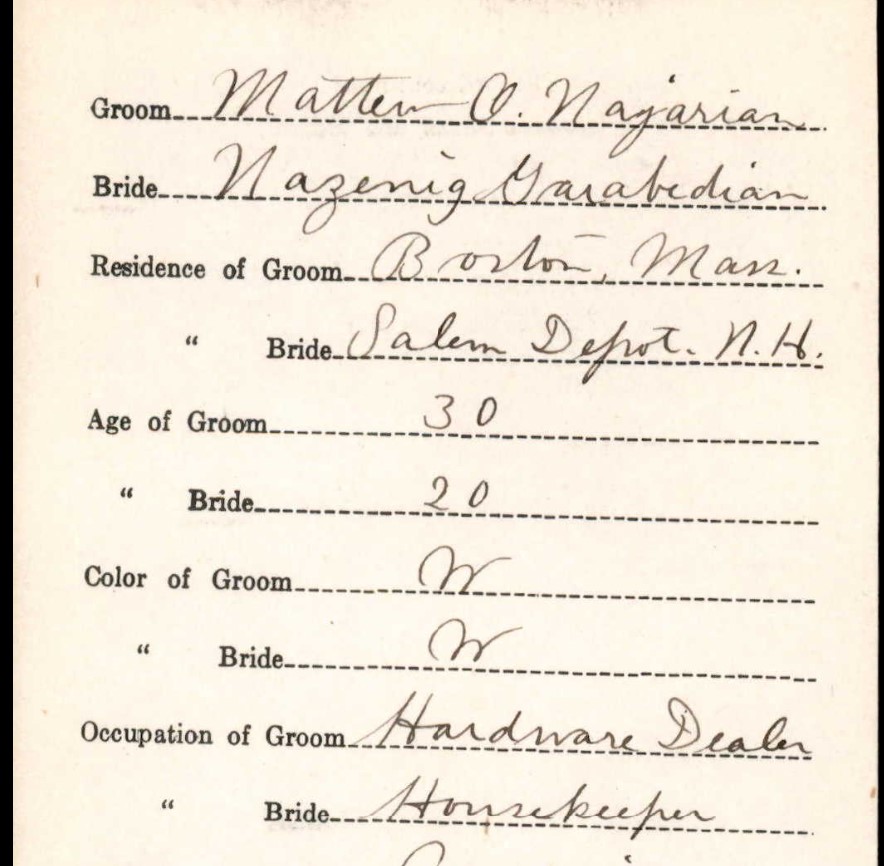 Groom Matteu O. Najarian
Bride Nazenig Garabedian
Residence of Groom Boston, Mass.
" Bride Salem Depot. N.H.
Age of Groom 30
" Bride 20
Color of Groom W
" Bride W
Occupation of Groom Hardware Dealer
" Bride Housekeeper